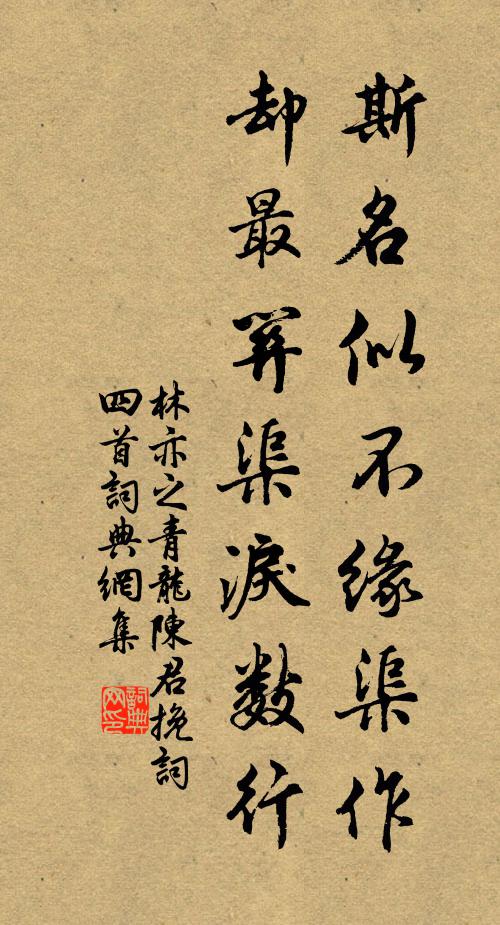 斯名似不緣渠作
却最關渠淚數行
林亦之青龍陳君挽詞
四首詞典網集
詞典网印